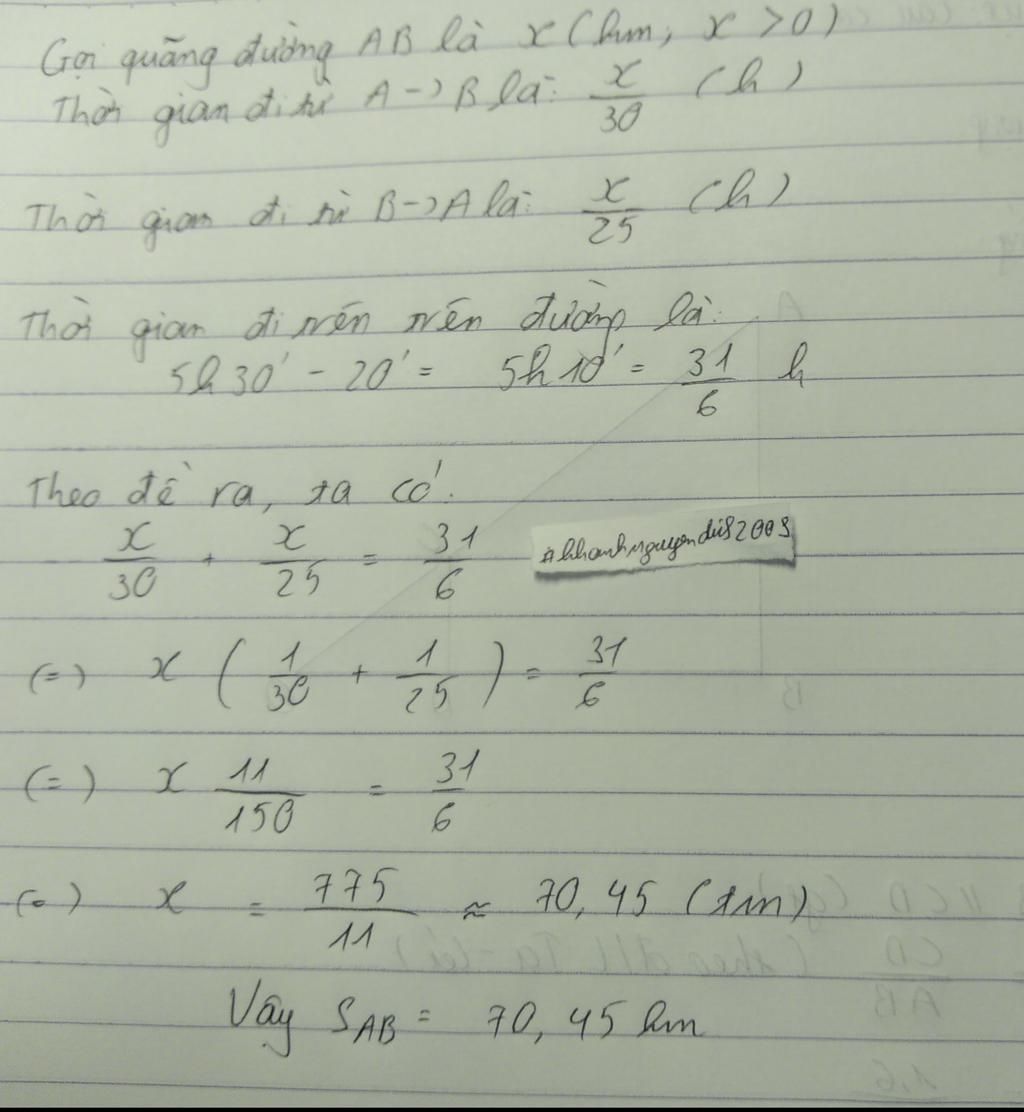 Gọi quãng đường AB là x (km; x > 0)
Thời gian đi từ A -> B là: x/30 (h)
Thời gian đi từ B -> A là: x/25 (h)
Thời gian đi trên trên đường là:
5h30' - 20' = 5h10' = 31/6 h
Theo đề ra, ta có:
x/30 + x/25 = 31/6
#khanhnguyendis2003
(=) x (1/30 + 1/25) = 31/6
(=) x 11/150 = 31/6
(=) x = 775/11 ≈ 70,45 (km)
Vậy SAB = 70,45 km